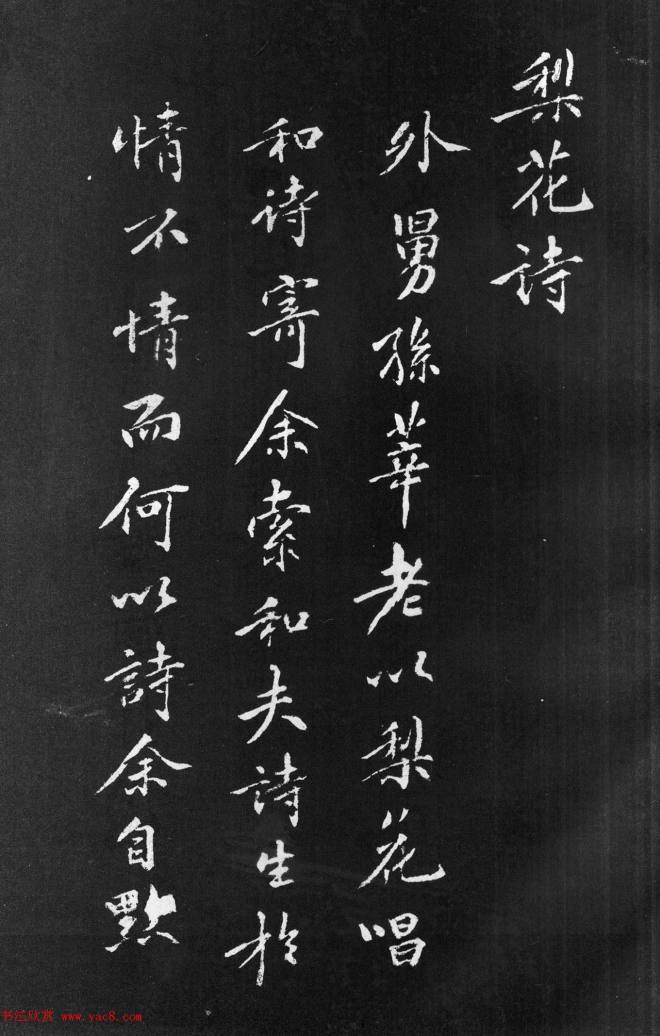 梨花诗
外舅孫莘老以梨花唱
和诗寄余索和夫詩生於
情不情而何以詩余自黙
书法欣赏 www.yac8.com